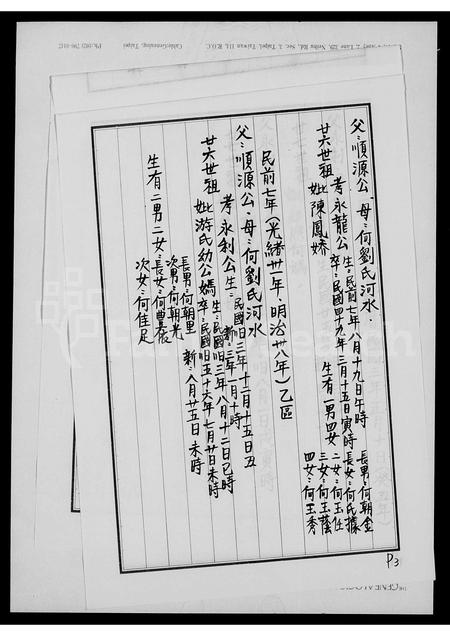 父:順源公.母:何劉氏河水.
考永龍公 生:民前七年八月十九日午時
廿六世祖 卒:民國四九年三月十五日寅時
妣陳鳳嬌 生有一男四女
長男:何朝金
長女:何氏據
二女:何玉仕
三女:何玉蔭
四女:何玉秀
民前七年(光緒卅一年.明治卅八年)乙巨
父:順源公.母:何劉氏河水
考永利公生:民國旧二年十二月十五日丑
新:三年一月十時
廿六世祖 生:民國旧三年八月十二日巳時
妣游氏幼公媽 卒:民國旧五十六年七月廿日未時
新:八月廿五日未時
生有二男二女:
長男:何朝里
次男:何朝光
長女:何
次女:何佳足
P3